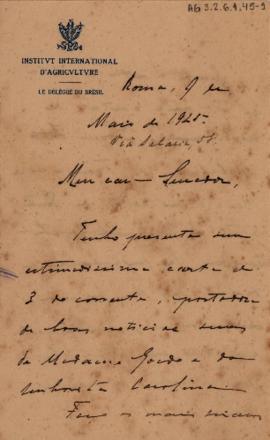 AG 3.2.6.1.45-9
INSTITVT INTERNATIONAL
D'AGRICVLTVRE
LE DÉLÉGUÉ DU BRÉSIL
Roma, 9 de
Maio de 1925.
Via Salaria, 51.
Meu caro Senador,
Tenho presente sua
estimadissima carta de
3 do corrente, portadora
de boas noticias suas
de Madame Guedes e da
senhorita Carolina.
Faço os mais